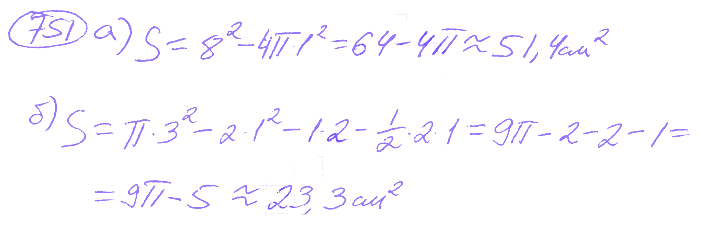 751 а) S = 8² - 4π1² = 64 - 4π ≈ 51,4 см²
б) S = π·3² - 2·1² - 1·2 - 1/2·2·1 = 9π - 2 - 2 - 1 =
= 9π - 5 ≈ 23,3 см²